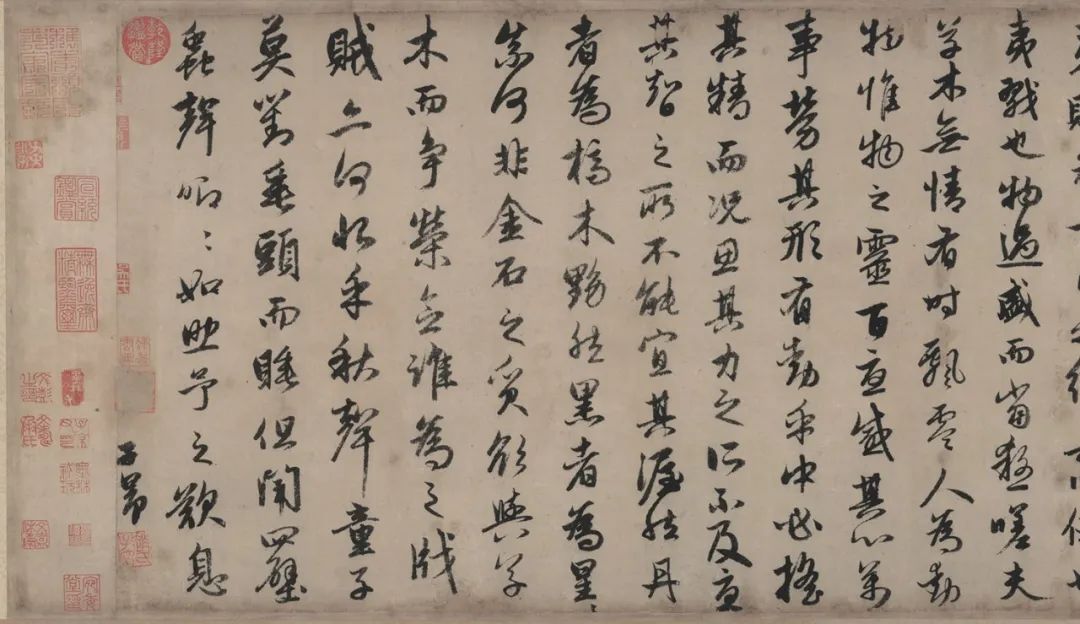 夷戮也物過盛而當殺嗟夫
草木無情有時飄零人為動
物惟物之靈百憂感其心萬
事勞其形有動乎中必搖
其精而況思其力之所不及憂
其智之所不能宜其渥然丹
者為槁木黟然黑者為星〻
柰何非金石之質欲與草
木而爭榮念誰為之戕
賊亦何恨乎秋聲童子
莫對垂頭而睡但聞四壁
蟲聲唧〻如助予之歎息
子昂
乾隆鑑賞